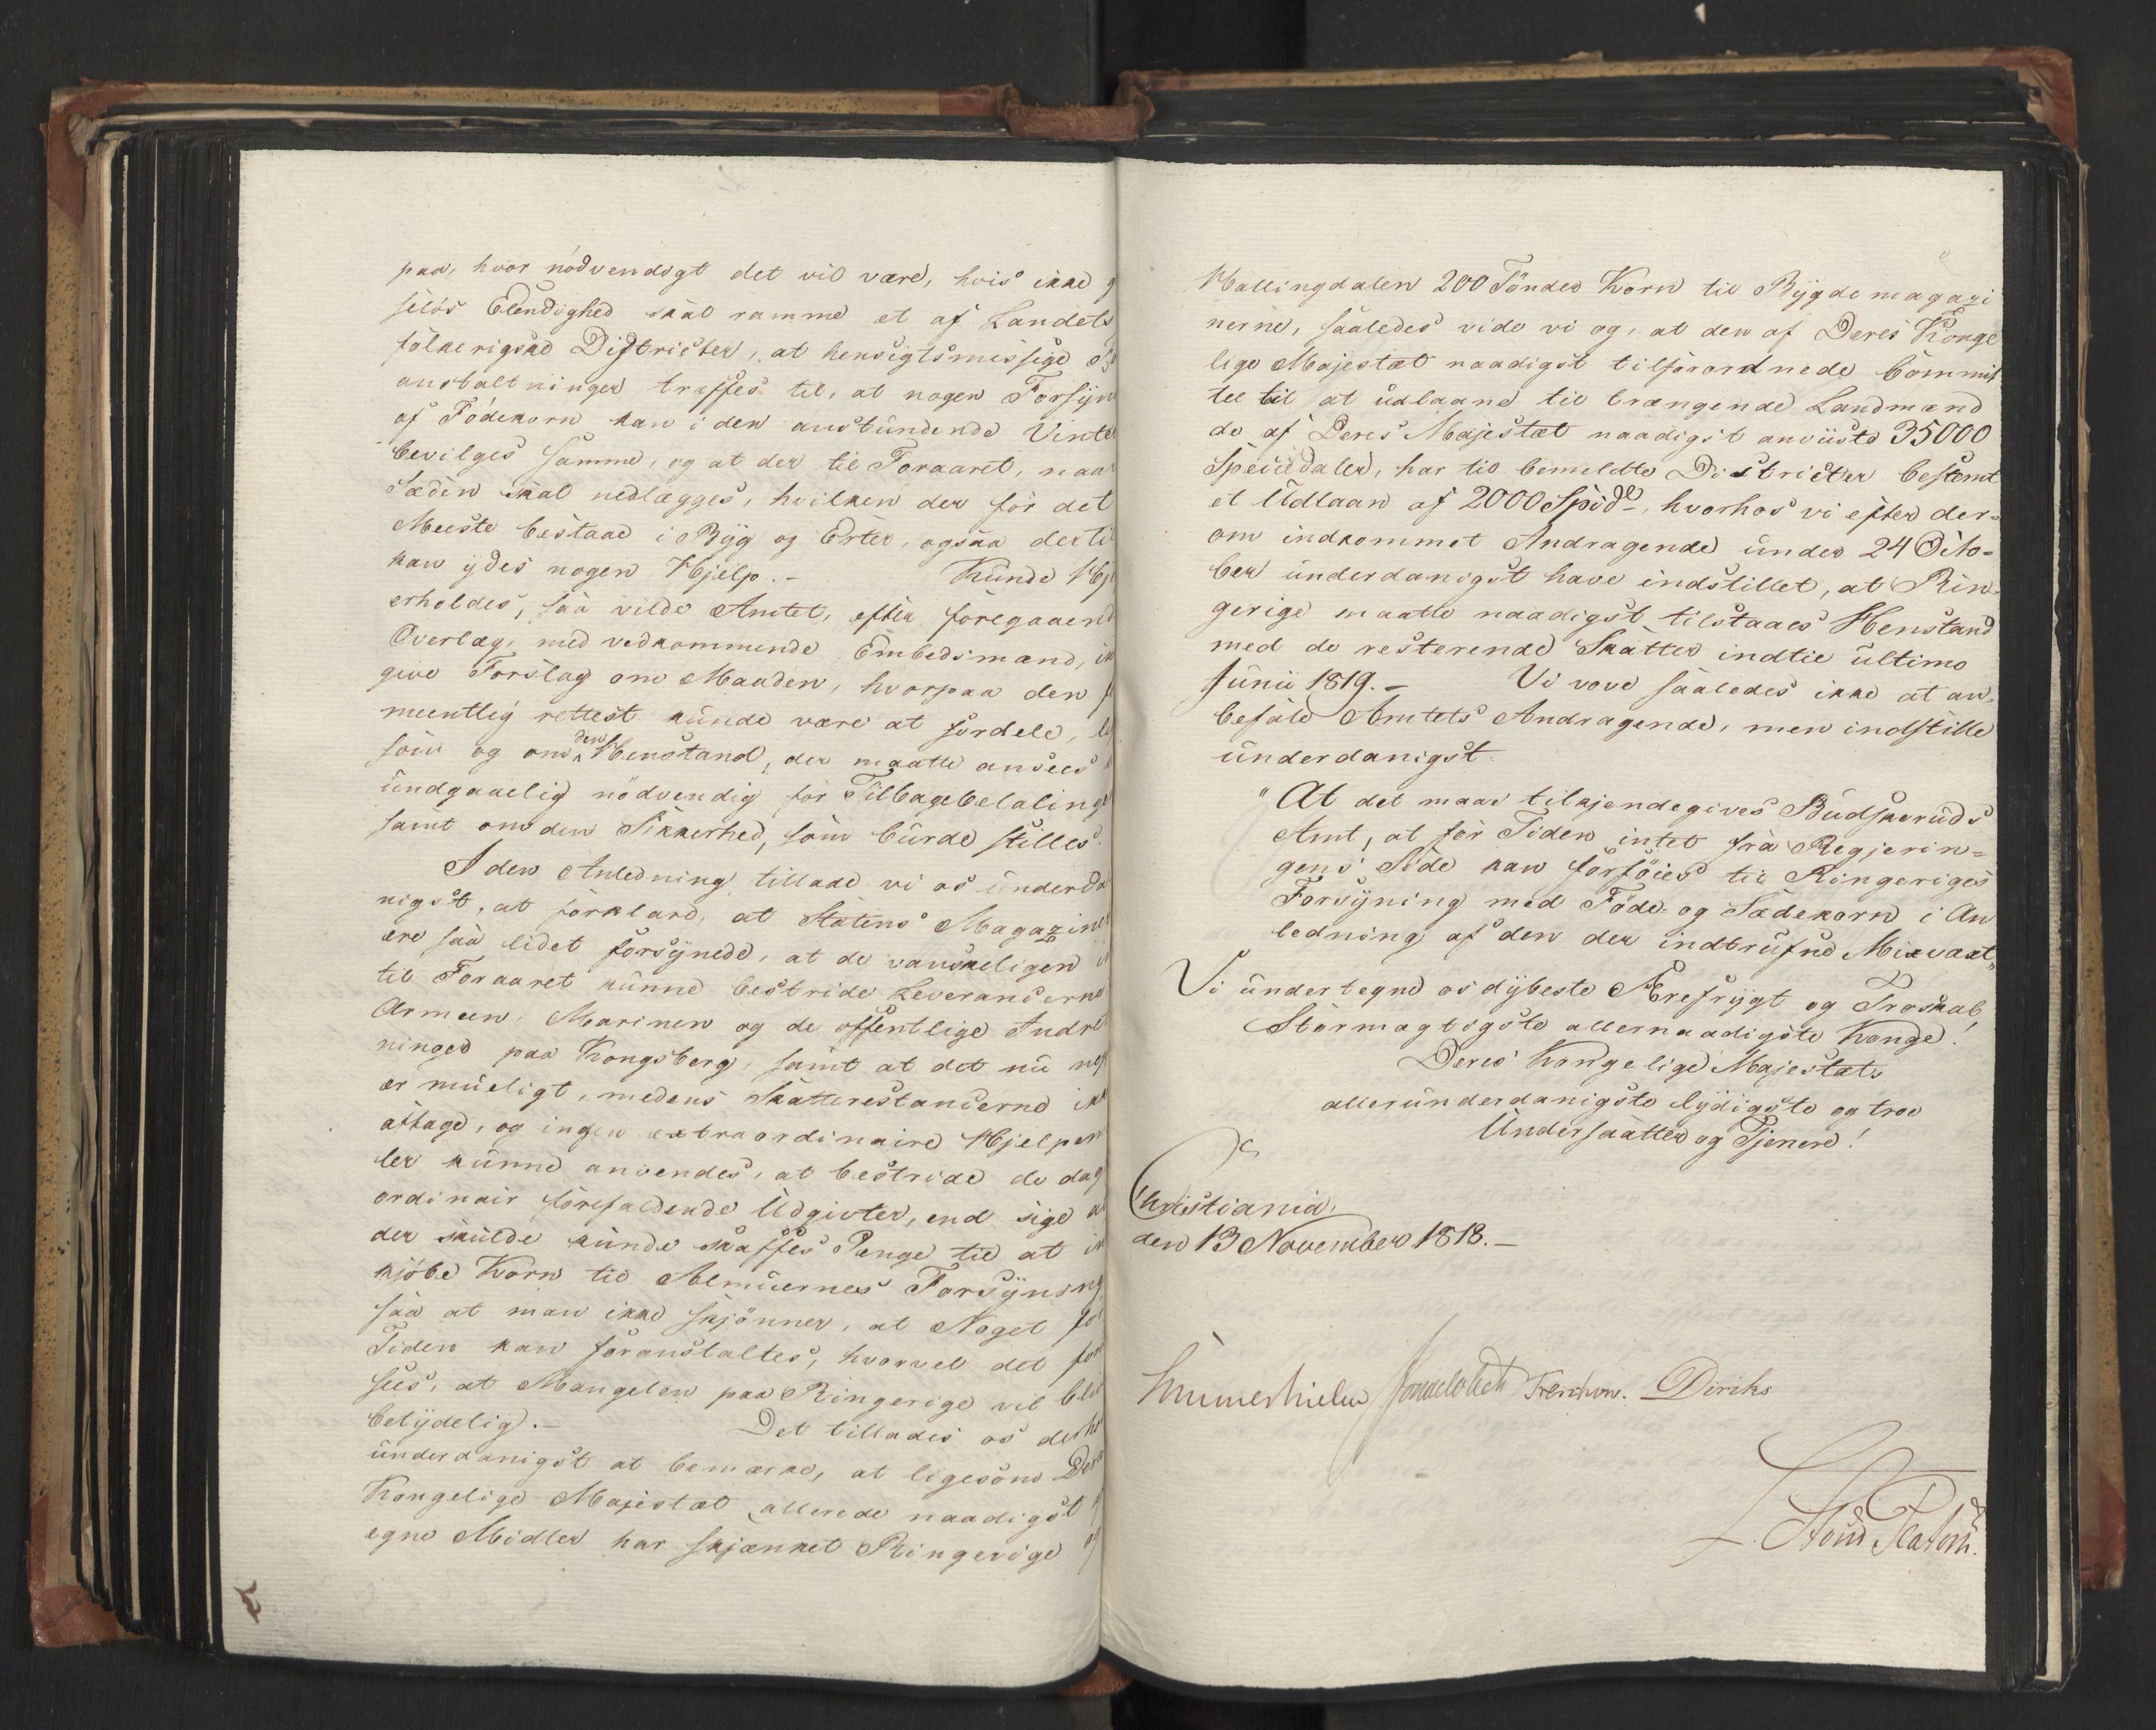 paa, hvor nödvendigt det vil være, hvis ikke
selös Elendighed skal ramme et af Landets
folkerigske Districter, at hensigtsmessige
anstaltninger treffes til, at nogen Forsyn
af Födekorn kan i den anstundende Vinte
bevilges samme, og at der til Foraaret, naa
Sæden skal nedlægges, hvilken der for det
Meeste bestaae i Byg og Erter, ogsaa derti
kan ydes nogen Hjelp. - Kunde Hje
erholdes, saa vilde Amtet, efter foregaaend
Overlæg med vedkommende Embedsmænd,
give Forslag om Maaden, hvorpaa den
meentlig rettest kunde være at fordele,
som og om den Henstand, der maatte ansees
undgaaelig nödvendig for Tilbagebetalinge
samt om den Sikkerhed, som burde stilles.
I den Anledning tillade vi os underda
nigst, at forklare, at Statens Magaziner
ere saa lidet forsynede, at de vanskeligen
til Foraaret kunne bestride Leverancerne
Armeen, Marinen og de offentlige Indre
ninger paa Kongsberg, samt at det nu nep
er mueligt, medens Skatterestancerne ikk
aftage, og ingen extraordinaire Hjelpem
ler kunne anvendes, at bestride de dag
ordinair forefaldende Udgivter, end sige a
der skulde kunde skaffes Penge til at in
kjöbe Korn til Almuernes Forsyning,
saa at man ikke skjönner, at Noget for
Tiden kan foranstaltes, hvorvel det for
sees, at Mangelen paa Ringerige vil bliv
betydelig. - Det tillades os derho
underdanigst at bemærke, at ligesom Dere
Kongelige Majestæt allerede naadigst
egne Midler har skjænket Ringerige og
Hallingdalen 200 Tönder Korn til Bygdemagazi
nerne, saaledes vide vi og, at den af Deres Konge
lige Majestæt naadigst tilforordnede Commit
tee til at udlaane til trængende Landmænd
de af Deres Majestæt naadigst anviiste 35000
Speciedaler, har til bemeldte Districter bestemt
et Udlaan af 2000 Spdl, hvorhos vi efter der-
om indkommet Andragende under 24 Octo-
ber underdanigst have indstillet, at Rin-
gerige maatte naadigst tilstaaes Henstand
med de resterende Skatter indtil ultimo
Junii 1819. - Vi vove saaledes ikke at an-
befale Amtets Andragende, men indstille
underdanigst:
"At det maae tilkjendegives Budskeruds
Amt, at for Tiden intet fra Regjerin-
gens Side kan forföies til Ringeriges
Forsyning med Föde- og Sædekorn i An
ledning af den der indtrufne Misvæxt"
Vi undertegne os dybeste Ærefrygt og Troskab
Stormægtigste allernaadigste Konge!
Deres Kongelige Majestæts
allerunderdanigste lydigste og troe
Undersaatter og Tjenere!
Christiania,
den 13 November 1818. -
Hummerhielm Sommerfeldt Treschow. Diriks
L. Stoud Platou.